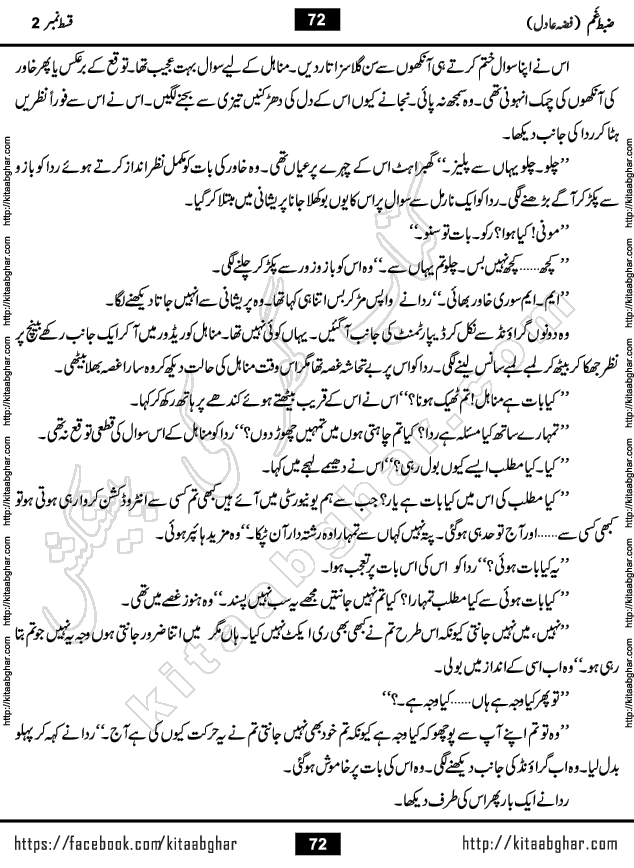 ضبطِ غم (فضہ عادل)
72
قسط نمبر 2
اس نے اپنا سوال ختم کرتے ہی آنکھوں سے سن گلاسز اتار دیں۔ مناہل کے لیے سوال بہت عجیب تھا۔ توقع کے برعکس یا پھر خاور
کی آنکھوں کی چمک انہونی تھی۔ وہ سمجھ نہ پائی۔ نجانے کیوں اس کے دل کی دھڑکنیں تیزی سے بجنے لگیں۔ اس نے اس سے فوراً نظریں
ہٹا کر ردا کی جانب دیکھا۔
’’چلو۔ چلو یہاں سے پلیز۔‘‘ گھبراہٹ اس کے چہرے پر عیاں تھی۔ وہ خاور کی بات کو مکمل نظر انداز کرتے ہوئے ردا کو بازو
سے پکڑ کر آگے بڑھنے لگی۔ ردا کو ایک نارمل سے سوال پر اس کا یوں بوکھلا جانا پریشانی میں مبتلا کر گیا۔
’’مونی! کیا ہوا؟ رکو۔ بات تو سنو۔‘‘
’’کچھ...... کچھ نہیں بس۔ چلو تم یہاں سے۔‘‘ وہ اس کو بازو زور سے پکڑ کر چلنے لگی۔
’’ایم۔ ایم سوری خاور بھائی۔‘‘ ردا نے واپس مڑ کر بس اتنا ہی کہا تھا۔ وہ پریشانی سے انہیں جاتا دیکھنے لگا۔
وہ دونوں گراؤنڈ سے نکل کر ڈیپارٹمنٹ کی جانب آ گئیں۔ یہاں کوئی نہیں تھا۔ مناہل کوریڈور میں آ کر ایک جانب رکھے بینچ پر
نظر جھکا کر بیٹھ کر لمبے لمبے سانس لینے لگی۔ ردا کو اس پر بے تحاشہ غصہ تھا مگر اس وقت مناہل کی حالت دیکھ کر وہ سارا غصہ بھلا بیٹھی۔
’’کیا بات ہے مناہل! تم ٹھیک ہو نا؟‘‘ اس نے اس کے قریب بیٹھتے ہوئے کندھے پر ہاتھ رکھ کر کہا۔
’’تمہارے ساتھ کیا مسئلہ ہے ردا؟ کیا تم چاہتی ہوں میں تمہیں چھوڑ دوں؟‘‘ ردا کو مناہل کے اس سوال کی قطعی توقع نہ تھی۔
’’کیا۔ کیا مطلب ایسے کیوں بول رہی؟‘‘ اس نے دھیمے لہجے میں کہا۔
’’کیا مطلب کی اس میں کیا بات ہے یار؟ جب سے ہم یونیورسٹی میں آئے ہیں کبھی تم کسی سے انٹروڈکشن کروا رہی ہوتی ہو تو
کبھی کسی سے...... اور آج تو حد ہی ہو گئی۔ پتہ نہیں کہاں سے تمہارا وہ رشتہ دار آن ٹپکا۔‘‘ وہ مزید ہائپر ہوئی۔
’’یہ کیا بات ہوئی؟‘‘ ردا کو اس کی اس بات پر تعجب ہوا۔
’’کیا بات ہوئی سے کیا مطلب تمہارا؟ کیا تم نہیں جانتیں مجھے یہ سب نہیں پسند۔‘‘ وہ ہنوز غصے میں تھی۔
’’نہیں، میں نہیں جانتی کیونکہ اس طرح تم نے کبھی بھی ری ایکٹ نہیں کیا۔ ہاں مگر میں اتنا ضرور جانتی ہوں وجہ یہ نہیں جو تم بتا
رہی ہو۔‘‘ وہ اب اسی کے انداز میں بولی۔
’’تو پھر کیا وجہ ہے ہاں...... کیا وجہ ہے۔؟‘‘
’’وہ تو تم اپنے آپ سے پوچھو کہ کیا وجہ ہے کیونکہ تم خود بھی نہیں جانتی تم نے یہ حرکت کیوں کی ہے آج۔‘‘ ردا نے کہہ کر پہلو
بدل لیا۔ وہ اب گراؤنڈ کی جانب دیکھنے لگی۔ وہ اس کی بات پر خاموش ہو گئی۔
ردا نے ایک بار پھر اس کی طرف دیکھا۔
کتاب گھر کی پیشکش
kitaabghar.com
http://kitaabghar.com http://kitaabghar.com http://kitaabghar.com http://kitaabghar.com http://kitaabghar.com http://kitaabghar.com
http://kitaabghar.com http://kitaabghar.com http://kitaabghar.com http://kitaabghar.com http://kitaabghar.com http://kitaabghar.com
https://facebook.com/kitaabghar
72
http://kitaabghar.com